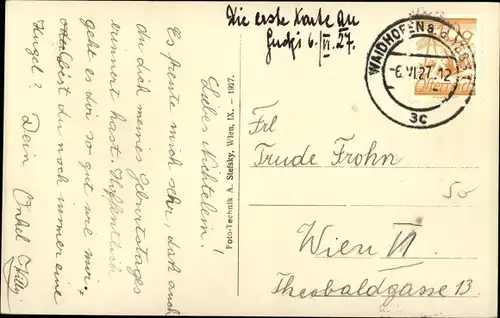 Die erste Karte an
Gucki 6./VI. 27.
Liebes Nichtelein!
Es freute mich sehr, daß auch
du dich meines Geburtstages
erinnert hast. Hoffentlich
geht es dir so gut wie mir,
bist du noch immer eine
Kugel?
Dein Onkel Willy
Foto-Technik A. Stefsky, Wien, IX. – 1927.
WAIDHOFEN A. D. YBBS
-6.VI.27.12
3c
Frl
Trude Frohn
Wien VI.
Theobaldgasse 13.
50